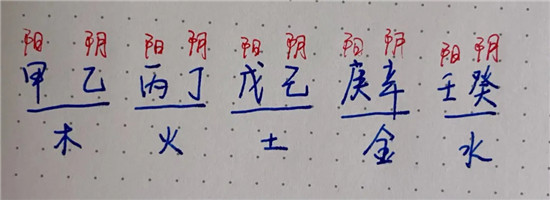 阳 阴 阳 阴 阳 阴 阳 阴 阳 阴
甲 乙 丙 丁 戊 己 庚 辛 壬 癸
木 火 土 金 水